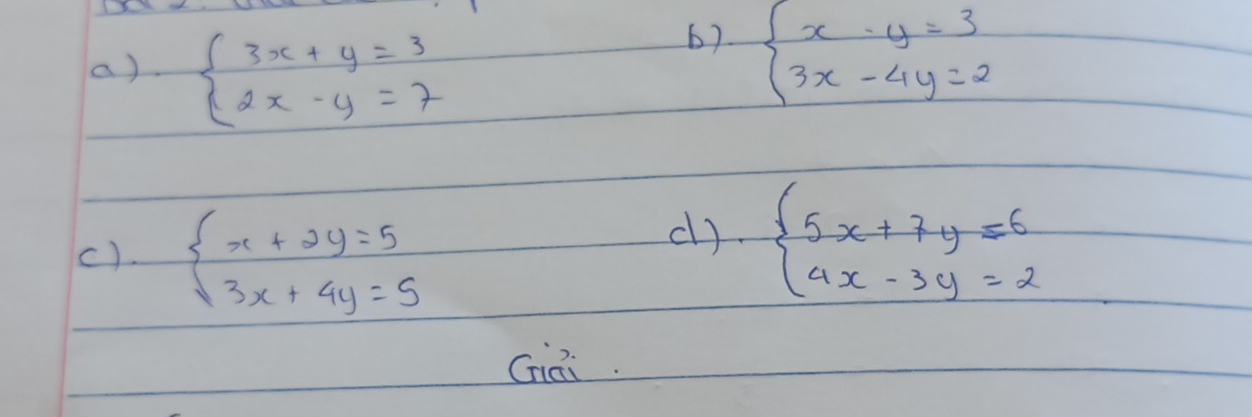 a). { 3x + y = 3
2x - y = 7
b). { x - y = 3
3x - 4y = 2
c). { x + 2y = 5
3x + 4y = 5
d). { 5x + 7y = 6
4x - 3y = 2
Giải.